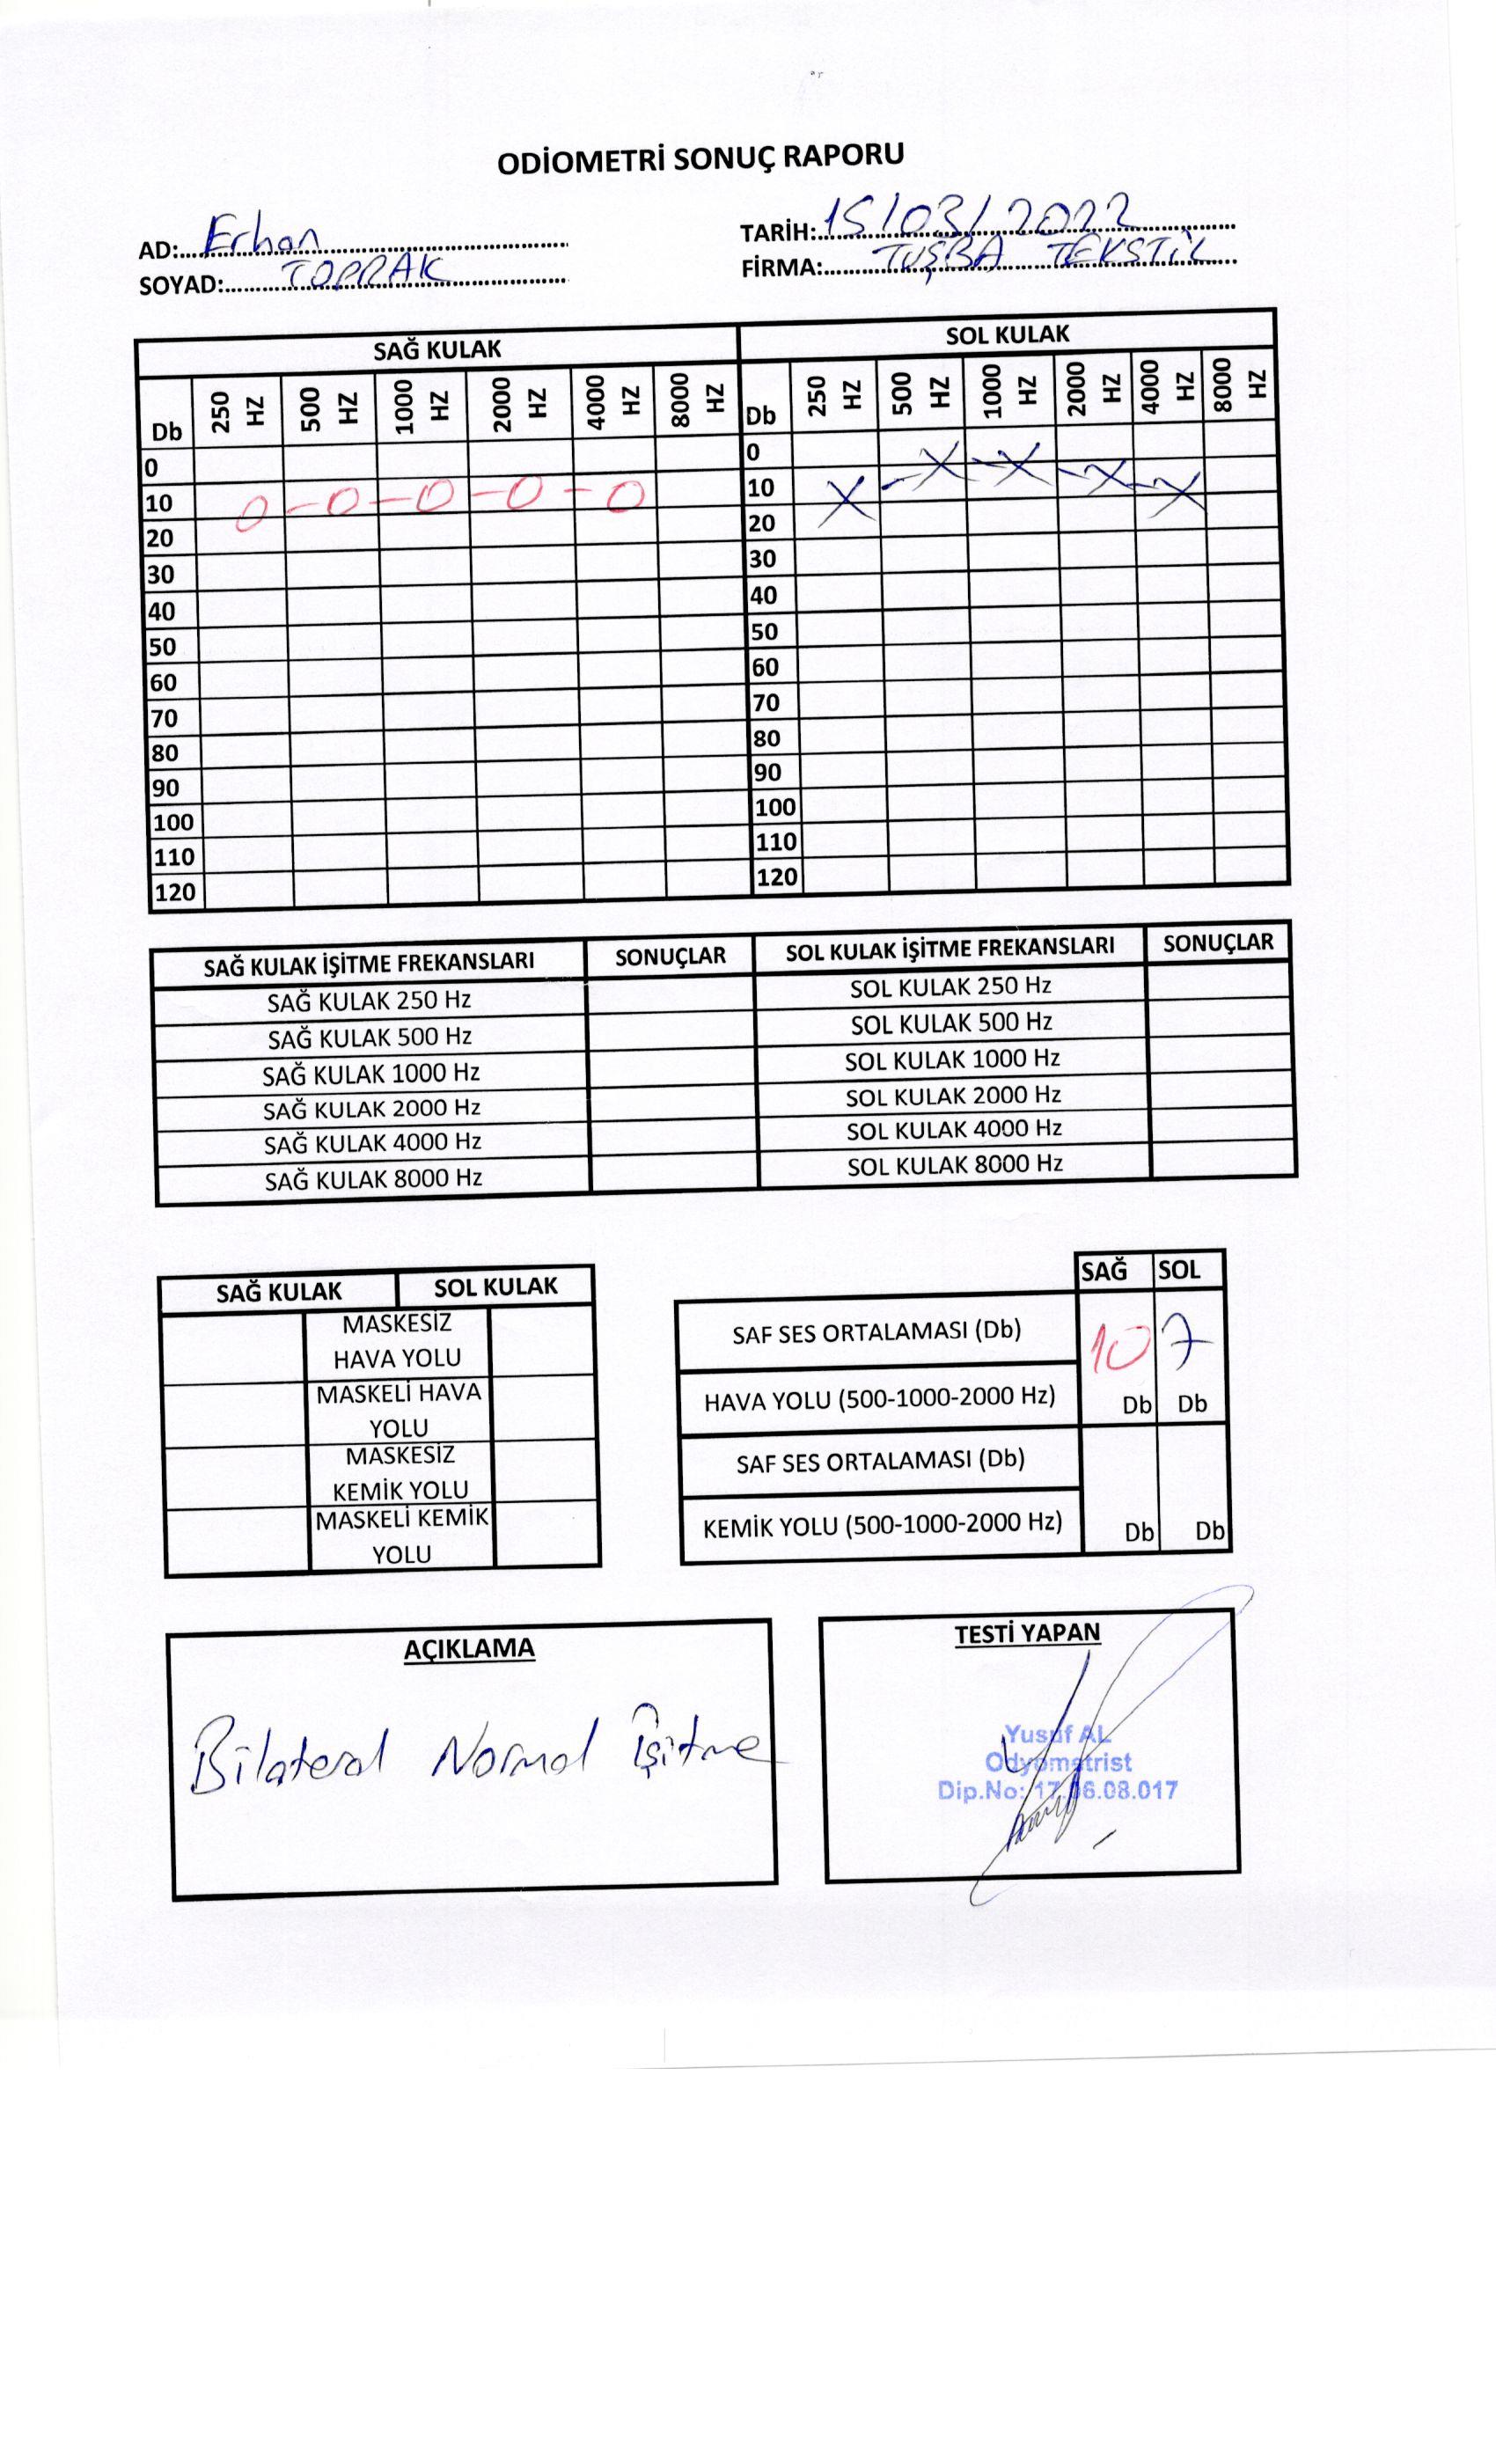 ODİOMETRİ SONUÇ RAPORU
AD: Erhan
SOYAD: TOPRAK
TARİH: 15/03/2022
FİRMA: TUŞBA TEKSTİL
SAĞ KULAK SOL KULAK
Db 250 HZ 500 HZ 1000 HZ 2000 HZ 4000 HZ 8000 HZ Db 250 HZ 500 HZ 1000 HZ 2000 HZ 4000 HZ 8000 HZ
0 0
10 10
20 20
30 30
40 40
50 50
60 60
70 70
80 80
90 90
100 100
110 110
120 120
SAĞ KULAK İŞİTME FREKANSLARI SONUÇLAR SOL KULAK İŞİTME FREKANSLARI SONUÇLAR
SAĞ KULAK 250 Hz SOL KULAK 250 Hz
SAĞ KULAK 500 Hz SOL KULAK 500 Hz
SAĞ KULAK 1000 Hz SOL KULAK 1000 Hz
SAĞ KULAK 2000 Hz SOL KULAK 2000 Hz
SAĞ KULAK 4000 Hz SOL KULAK 4000 Hz
SAĞ KULAK 8000 Hz SOL KULAK 8000 Hz
SAĞ KULAK SOL KULAK
MASKESİZ
HAVA YOLU
MASKELİ HAVA
YOLU
MASKESİZ
KEMİK YOLU
MASKELİ KEMİK
YOLU
SAĞ SOL
SAF SES ORTALAMASI (Db) 10 7
HAVA YOLU (500-1000-2000 Hz) Db Db
SAF SES ORTALAMASI (Db)
KEMİK YOLU (500-1000-2000 Hz) Db Db
AÇIKLAMA
Bilateral Normal İşitme
TESTİ YAPAN
Yusuf AL
Odyometrist
Dip.No: 17.06.08.017